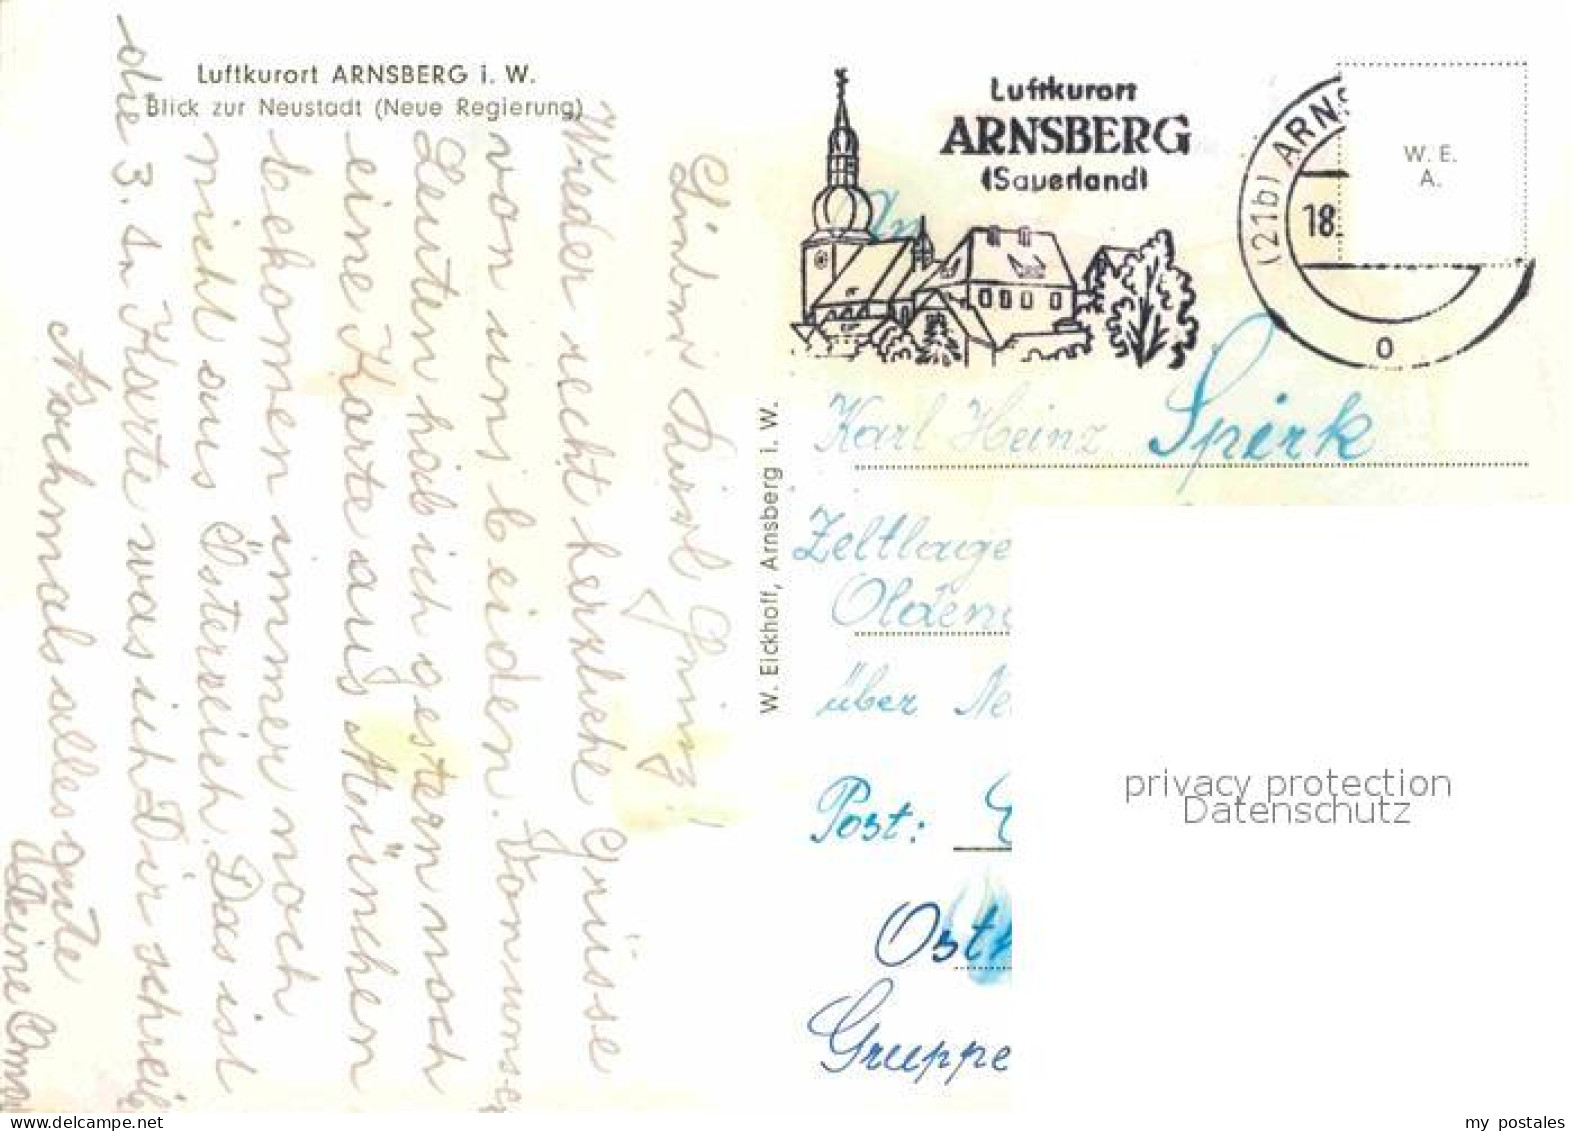 Luftkurort ARNSBERG i. W.
Blick zur Neustadt (Neue Regierung)
Karl Heinz!
Wieder recht herzliche Grüsse
von uns beiden. Von unse
Leuten hab ich gestern noch
eine Karte aus München
bekommen immer noch
nicht aus Österreich. Das ist
die 3. Karte was ich Dir schreib
Nochmals alles gute
Deine Oma
W. Eickhoff, Arnsberg i. W.
Luftkurort
ARNSBERG
(Sauerland)
(21b) ARNS
18.
o
W. E.
A.
An
Karl Heinz Spirk
Zeltlage
Olden
über Ne
Post:
Ost
Gruppe
privacy protection
Datenschutz
my postales